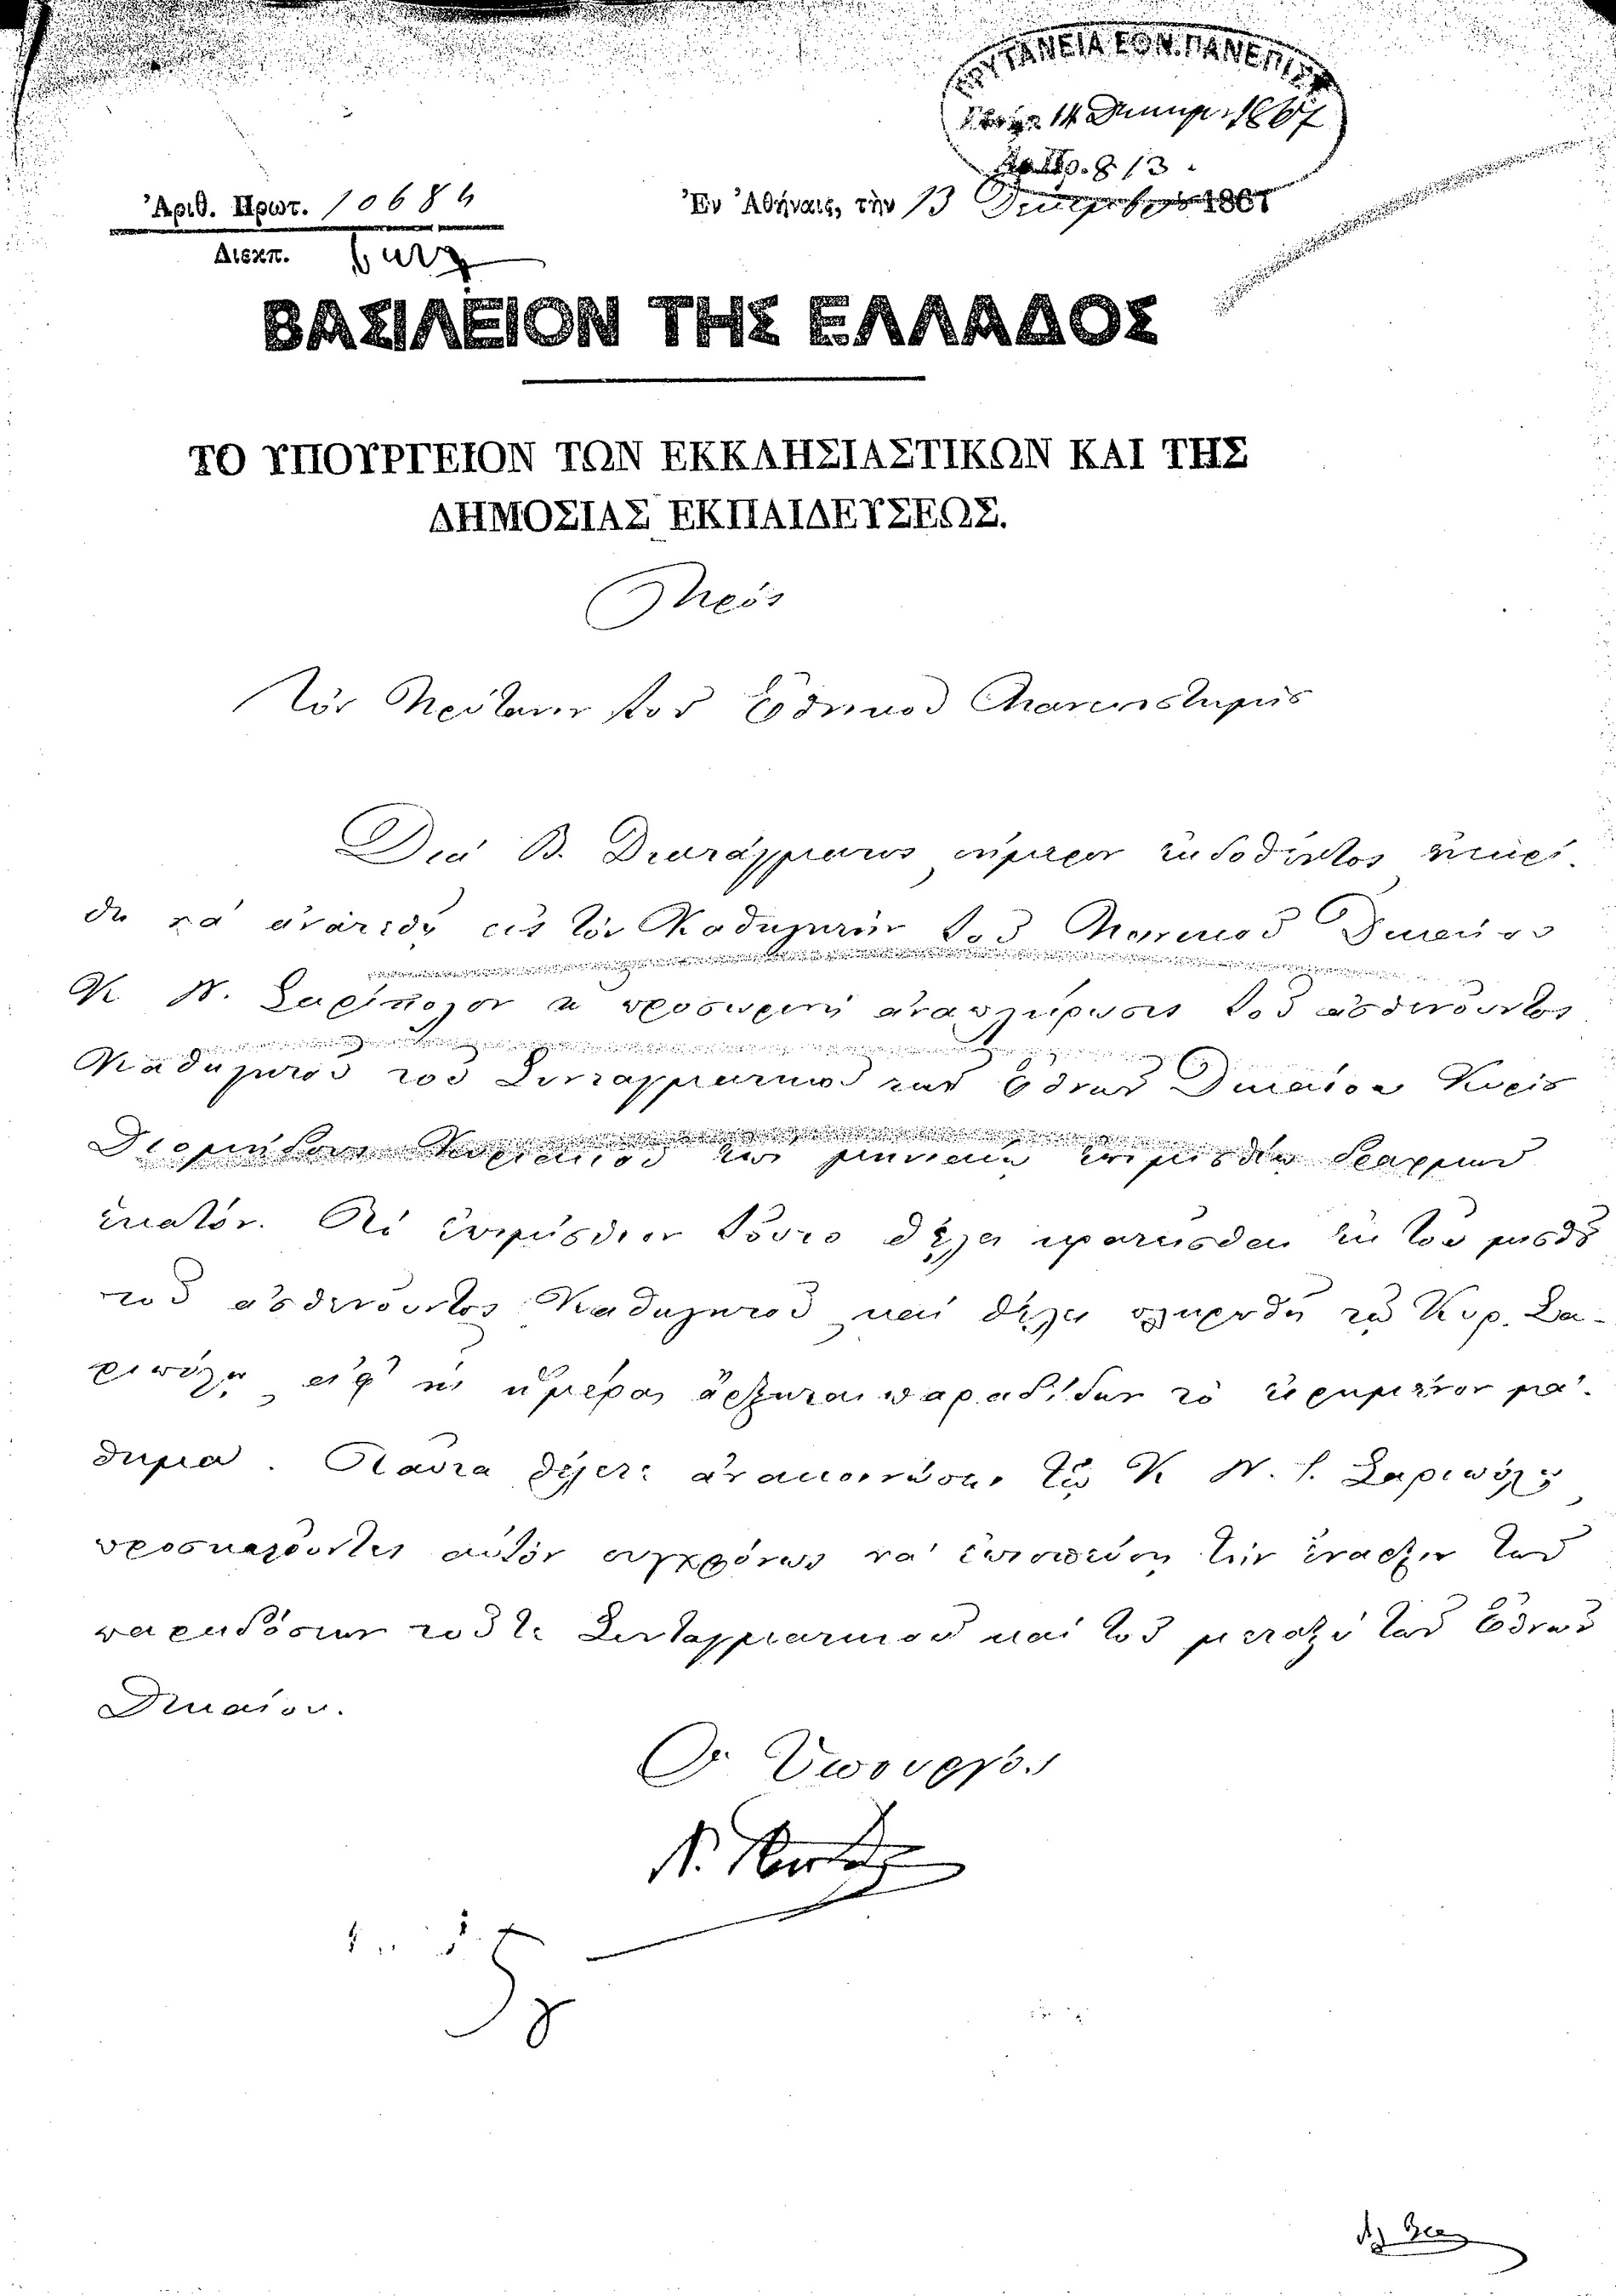 ΠΡΥΤΑΝΕΙΑ ΕΘΝ. ΠΑΝΕΠΙΣΤ
14 Δεκεμβρ. 1867
Αρ. Πρ. 813.
Ἀριθ. Πρωτ. 10684
Ἐν Ἀθήναις, τὴν 13 Δεκεμβρίου 1867
Διεκπ.
ΒΑΣΙΛΕΙΟΝ ΤΗΣ ΕΛΛΑΔΟΣ
ΤΟ ΥΠΟΥΡΓΕΙΟΝ ΤΩΝ ΕΚΚΛΗΣΙΑΣΤΙΚΩΝ ΚΑΙ ΤΗΣ
ΔΗΜΟΣΙΑΣ ΕΚΠΑΙΔΕΥΣΕΩΣ.
Πρὸς
Τὸν Πρύτανιν τοῦ Ἐθνικοῦ Πανεπιστημίου
Διὰ Β. Διατάγματος σήμερον ἐκδοθέντος ἐνεκρί-
θη νὰ ἀνατεθῇ εἰς τὸν Καθηγητὴν τοῦ Ποινικοῦ Δικαίου
Κ Ν. Σαρίπολον ἡ προσωρινὴ ἀναπλήρωσις τοῦ ἀσθενοῦντος
Καθηγητοῦ τοῦ Συνταγματικοῦ τῶν Ἐθνῶν Δικαίου Κυρίου
Διομήδους Κυριακοῦ ἐπὶ μηνιαίῳ ἐπιμισθίῳ δραχμῶν
ἑκατόν. Τὸ ἐπιμίσθιον τοῦτο θέλει κρατεῖσθαι ἐκ τοῦ μισθοῦ
τοῦ ἀσθενοῦντος Καθηγητοῦ καὶ θέλει πληρωθῆ τῷ Κυρ. Σα-
ριπόλῳ, ἀφ' ἧς ἡμέρας ἄρξηται παραδίδων τὸ εἰρημένον μά-
θημα. Ταῦτα θέλετε ἀνακοινώσει τῷ Κ Ν. Ι. Σαριπόλῳ
προσκαλοῦντες αὐτὸν συγχρόνως νὰ ἐπισπεύσῃ τὴν ἔναρξιν τῶν
παραδόσεων τοῦ τε Συνταγματικοῦ καὶ τοῦ μεταξὺ τῶν Ἐθνῶν
Δικαίου.
Ὁ Ὑπουργὸς